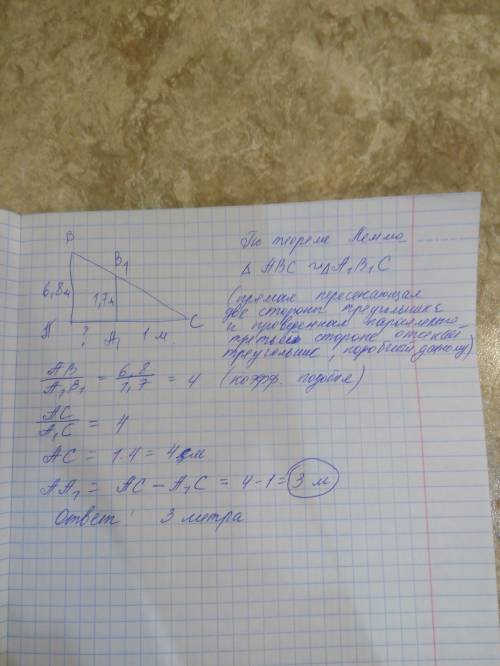 B
B₁
6,8м
1,7м
A
?
A₁
1 м
C
По теореме Лемма
Δ ABC ∾ Δ A₁B₁C
(прямая пересекающая
две стороны треугольника
и проведенная параллельно
третьей стороне отсекает
треугольник, данному)
AB/A₁B₁ = 6,8/1,7 = 4 (коэфф. подобия)
AC/A₁C = 4
AC = 1·4 = 4 м
AA₁ = AC − A₁C = 4-1= 3 м
Ответ: 3 метра